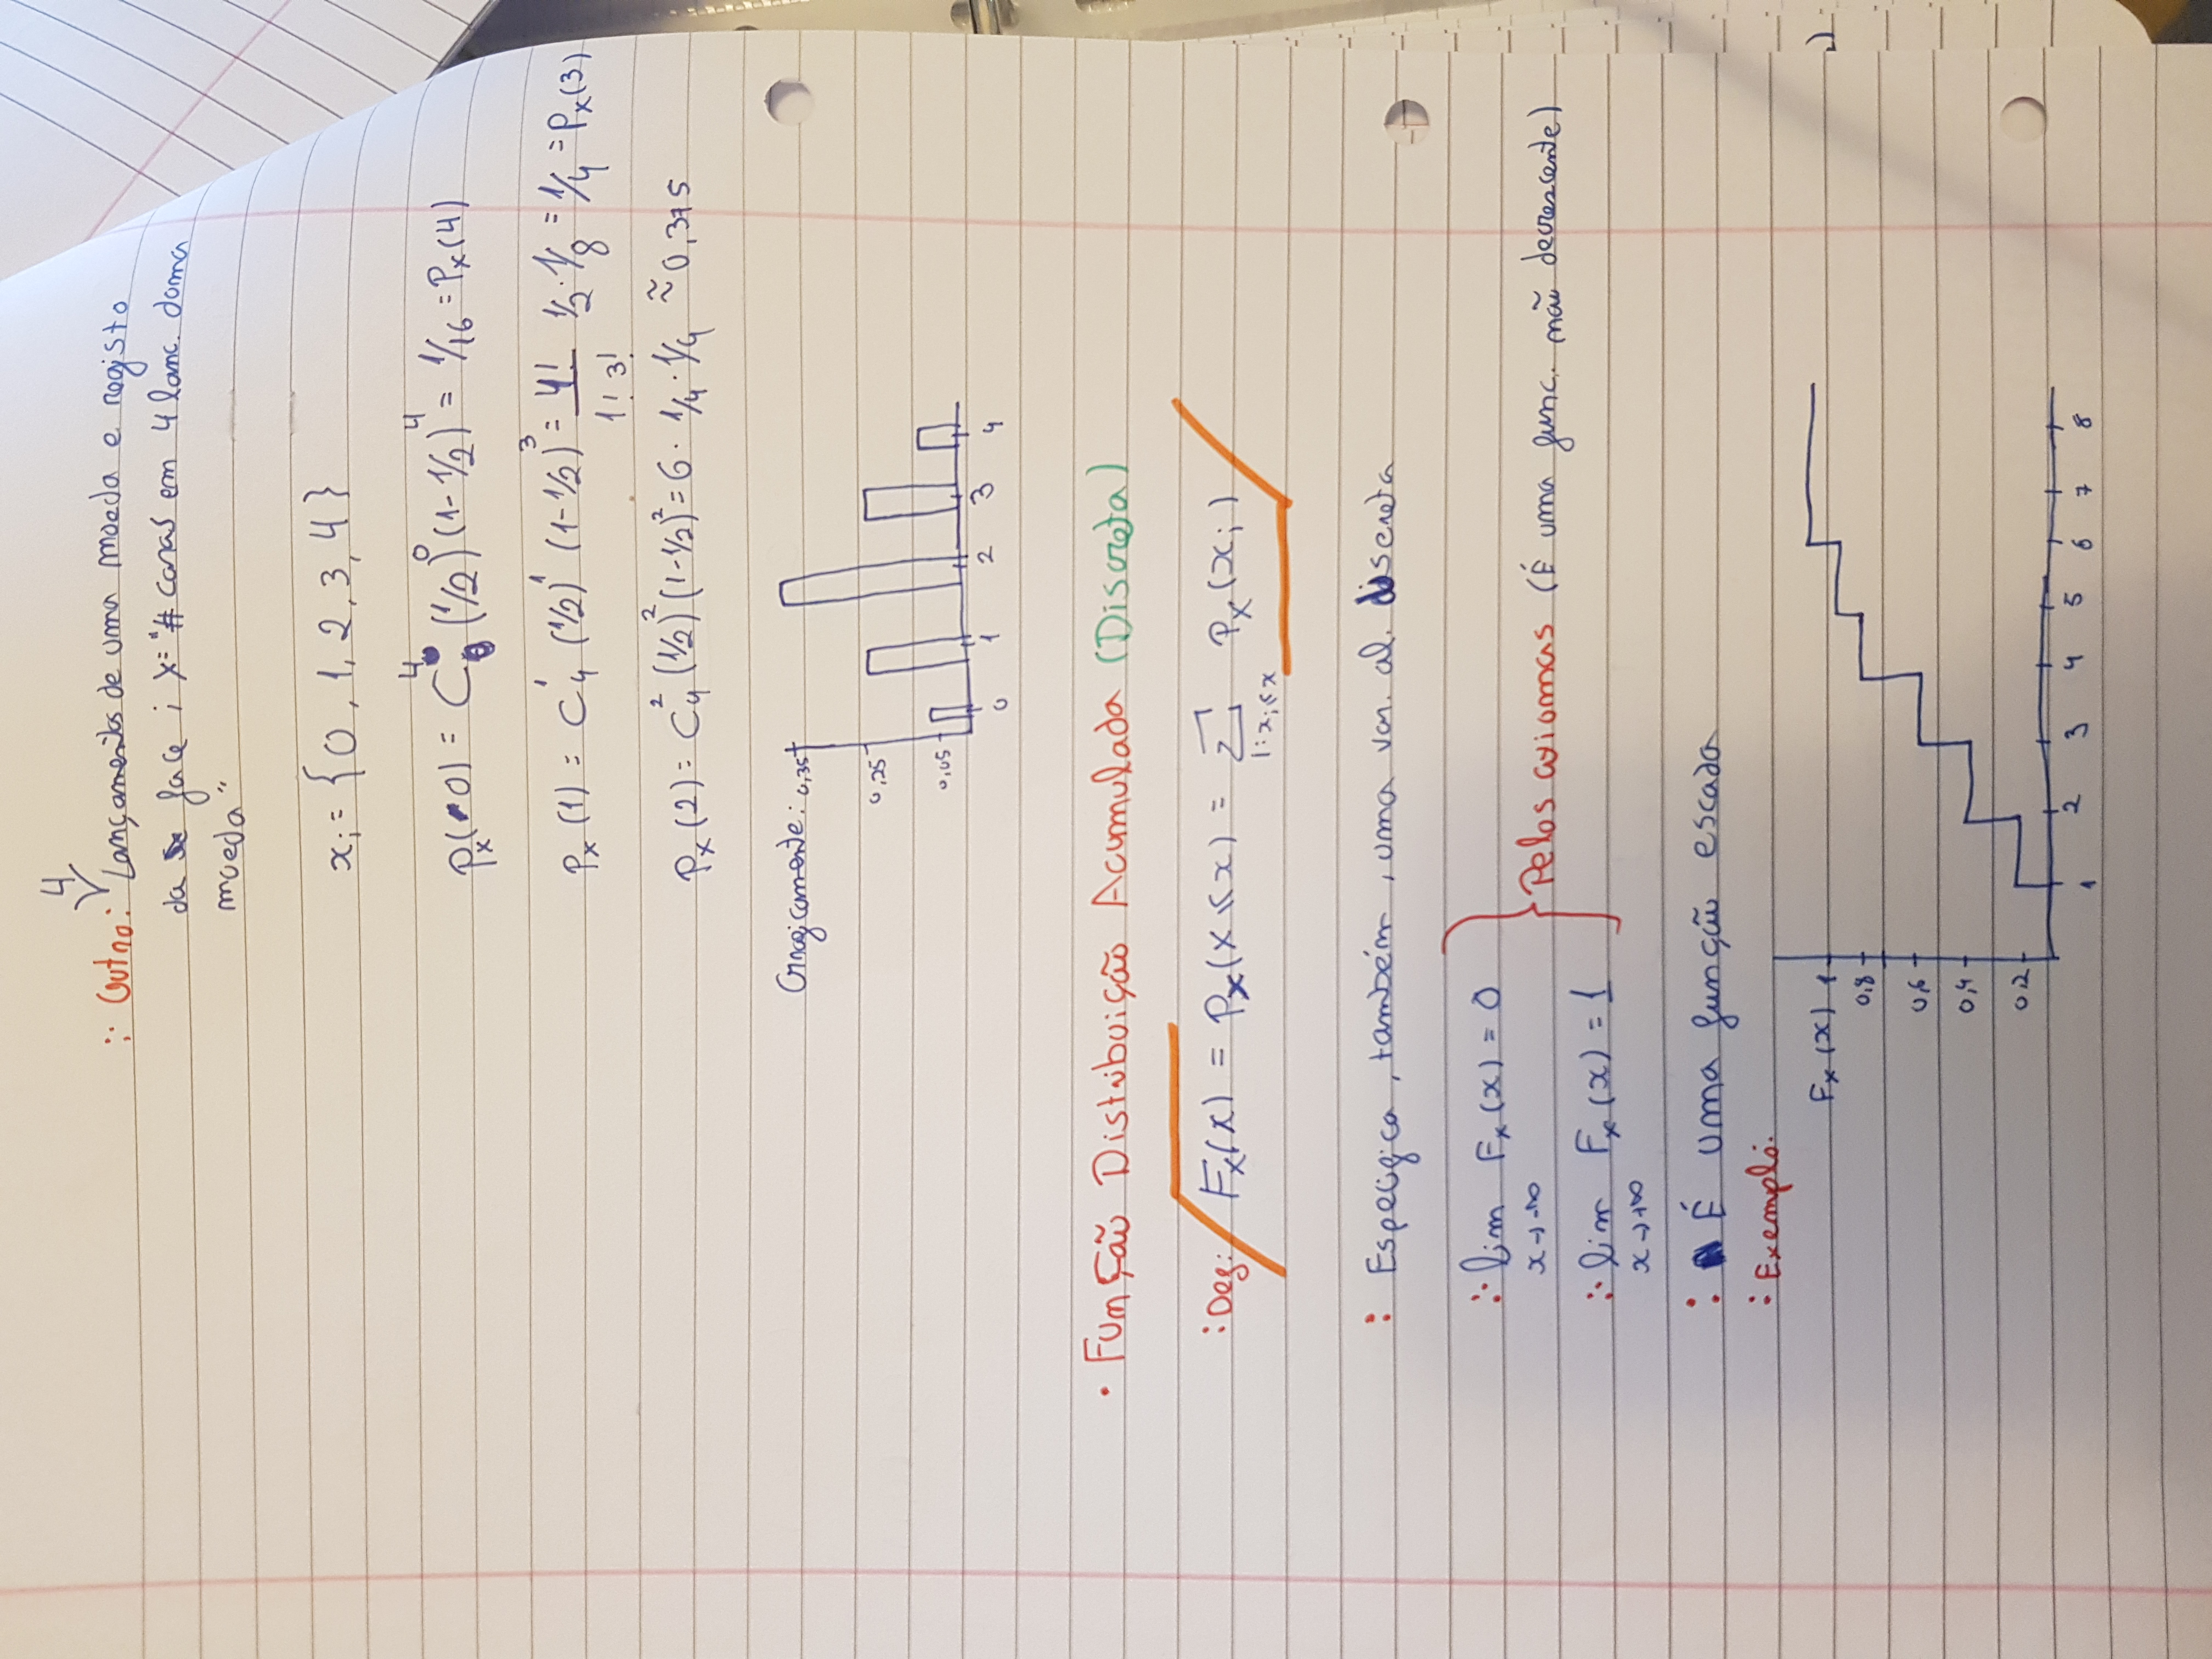 4
: Outro: Lançamentos de uma moeda e registo
da face ; X = "# caras em 4 lanc. duma
moeda"
xᵢ = {0, 1, 2, 3, 4}
Pₓ(0) = C⁴₀ (1/2)⁰ (1-1/2)⁴ = 1/16 = Pₓ(4)
Pₓ(1) = C¹₄ (1/2)¹ (1-1/2)³ = 4!/(1! 3!) 1/2 · 1/8 = 1/4 = Pₓ(3)
Pₓ(2) = C²₄ (1/2)² (1-1/2)² = 6 · 1/4 · 1/4 ≈ 0,375
Graficamente: 0,35
0,25
0,05
0 1 2 3 4
• Função Distribuição Acumulada (Discreta)
: Def: Fₓ(x) = Pₓ(X ≤ x) = Σ Pₓ(xᵢ)
1: xᵢ ≤ x
: Especifica, também, uma var. al. discreta
∴ lim Fₓ(x) = 0
x → -∞
Pelos axiomas (É uma func. não decrescente)
∴ lim Fₓ(x) = 1
x → +∞
: É uma função escada
: Exemplo:
Fₓ(x) 1
0,8
0,6
0,4
0,2
1 2 3 4 5 6 7 8